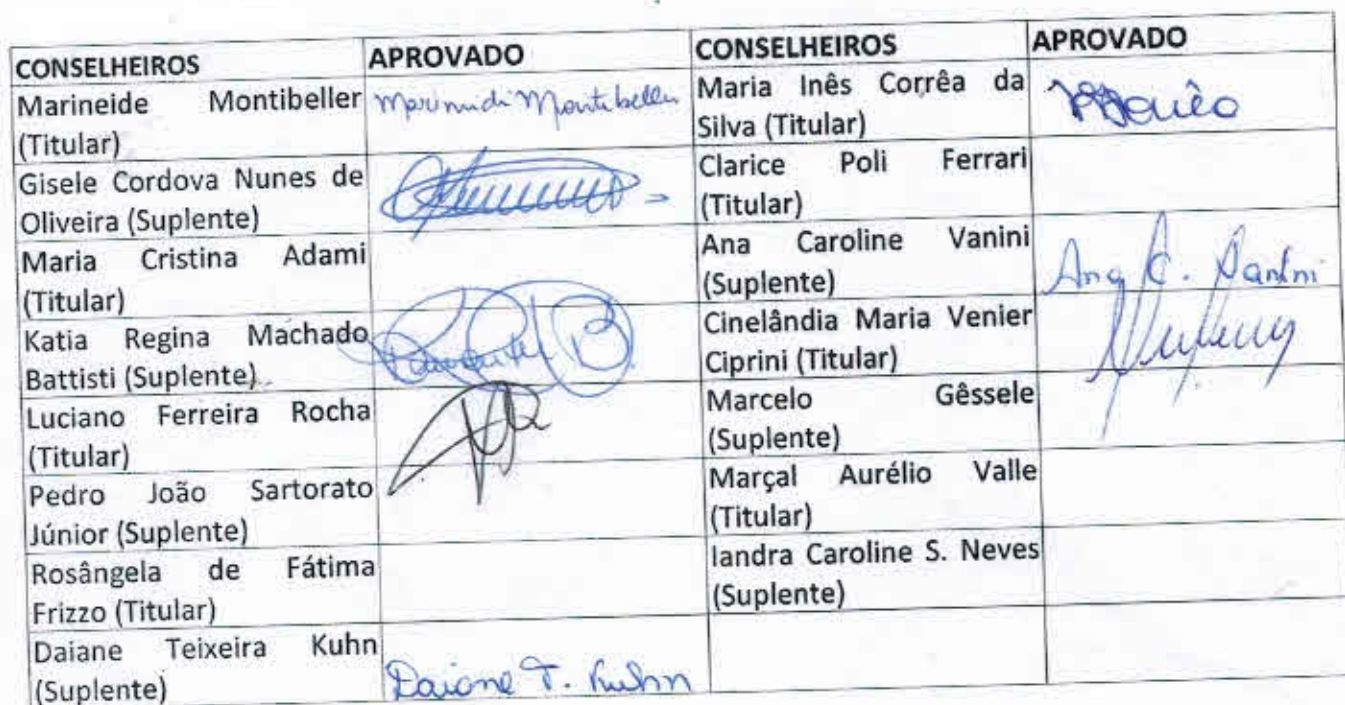 CONSELHEIROS APROVADO CONSELHEIROS APROVADO
Marineide Montibeller (Titular) Marineide Montibeller
Maria Inês Corrêa da Silva (Titular)
Gisele Cordova Nunes de Oliveira (Suplente)
Clarice Poli Ferrari (Titular)
Maria Cristina Adami (Titular)
Ana Caroline Vanini (Suplente) Ana C. Vanini
Katia Regina Machado Battisti (Suplente)
Cinelândia Maria Venier Ciprini (Titular)
Luciano Ferreira Rocha (Titular)
Marcelo Gêssele (Suplente)
Pedro João Sartorato Júnior (Suplente)
Marçal Aurélio Valle (Titular)
Rosângela de Fátima Frizzo (Titular)
Iandra Caroline S. Neves (Suplente)
Daiane Teixeira Kuhn (Suplente) Daiane T. Kuhn